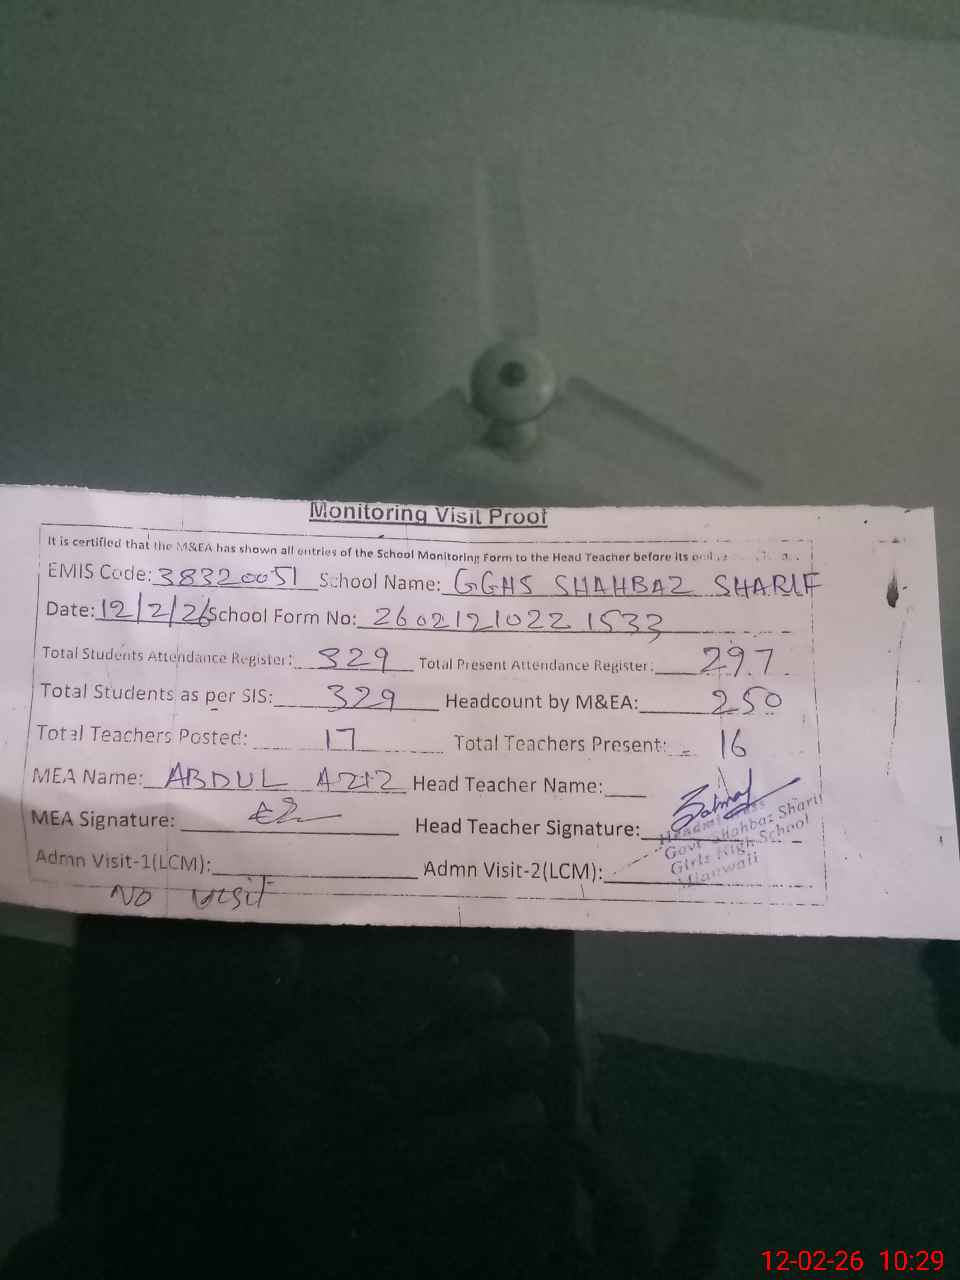 Monitoring Visit Proof
It is certified that the M&EA has shown all entries of the School Monitoring Form to the Head Teacher before its
EMIS Code: 38320051 School Name: GGHS SHAHBAZ SHARIF
Date: 12/2/26 School Form No: 26021210221533
Total Students Attendance Register: 329 Total Present Attendance Register: 297
Total Students as per SIS: 329 Headcount by M&EA: 250
Total Teachers Posted: 17 Total Teachers Present: 16
MEA Name: ABDUL AZIZ Head Teacher Name:
MEA Signature: Head Teacher Signature:
Headmistress
Govt Shahbaz Sharif
Girls High School
Mianwali
Admn Visit-1(LCM): Admn Visit-2(LCM):
No visit
12-02-26 10:29